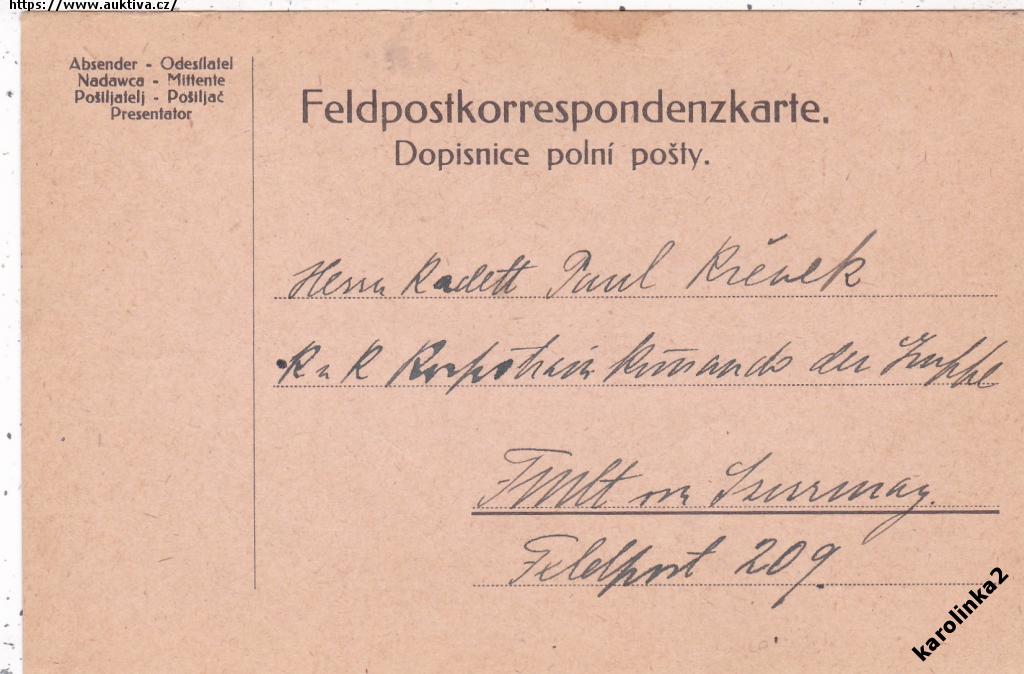 https://www.auktiva.cz/
Absender - Odesílatel
Nadawca - Mittente
Pošiljatelj - Pošiljač
Presentator
Feldpostkorrespondenzkarte.
Dopisnice polní pošty.
Herrn Kadett Paul
K u K Korpstrain Kommando der Gruppe
FMLt von Szurmay.
Feldpost 209
karolinka2